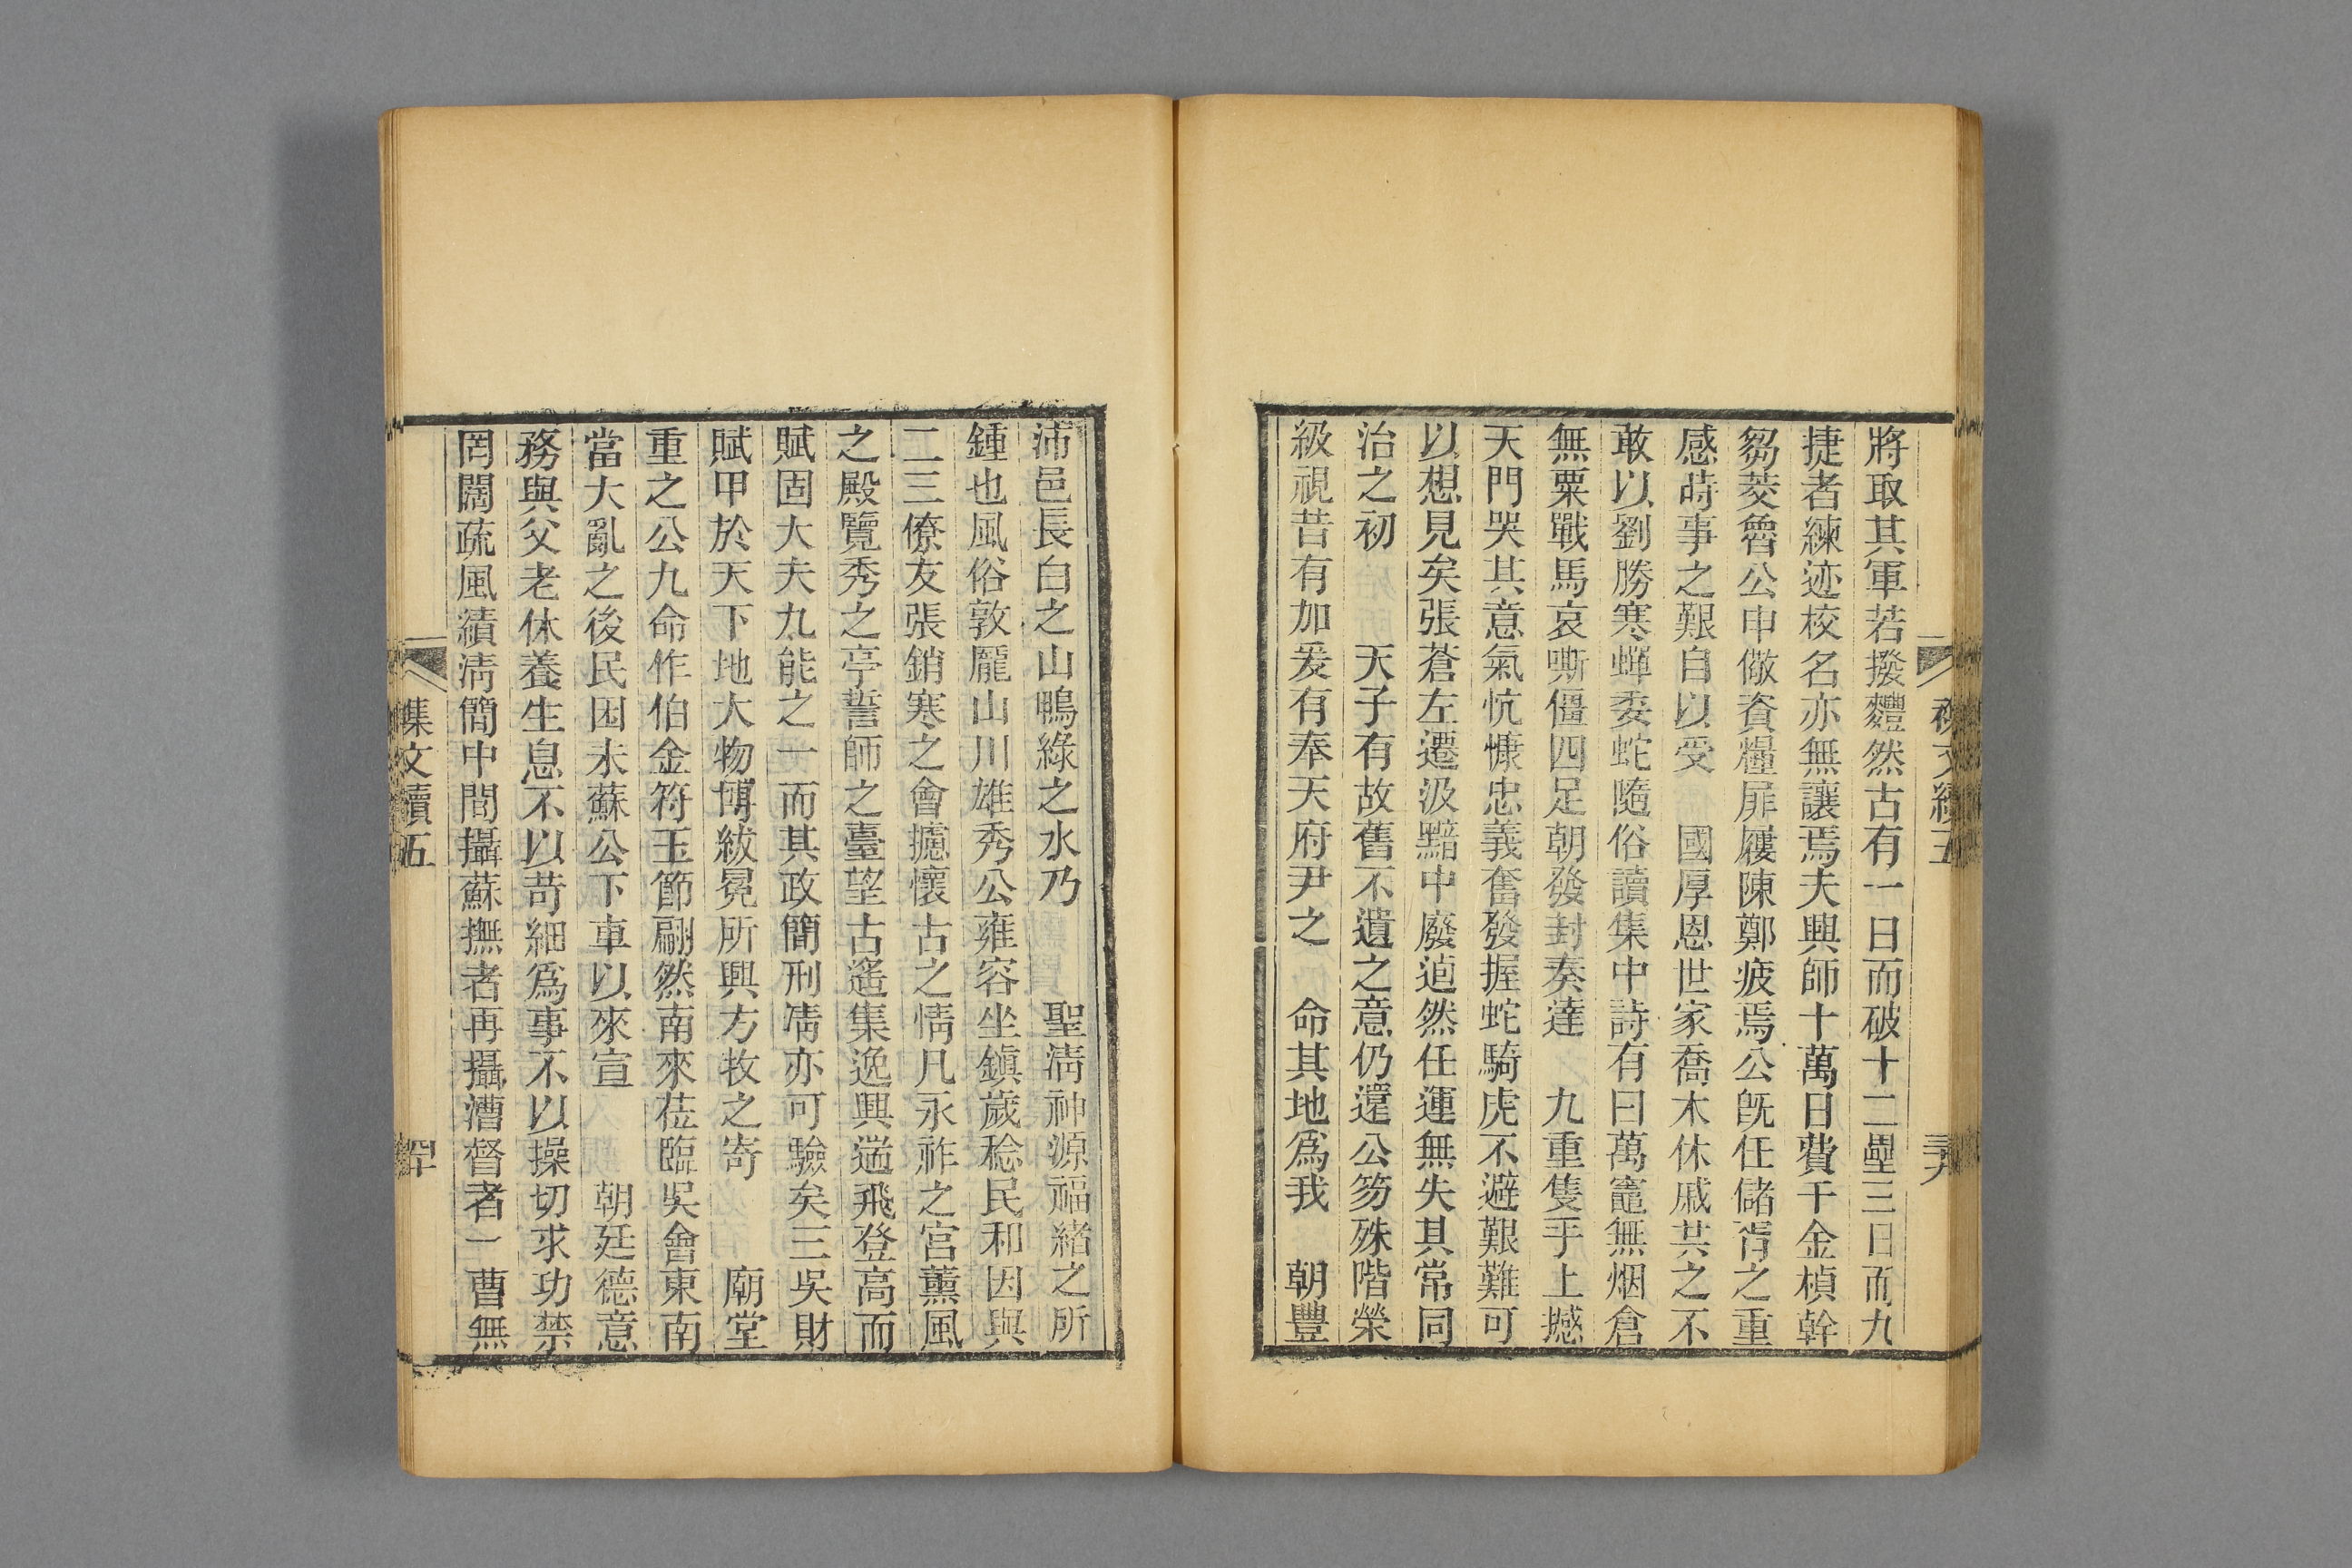 將取其軍若撥麷然古有一日而破十二壘三日而九
捷者練迹校名亦無讓焉夫興師十萬日費千金楨幹
芻茭魯公申儆資糧屝屨陳鄭疲焉公既任儲胥之重
感時事之艱自以受　國厚恩世家喬木休戚共之不
敢以劉勝寒蟬委蛇隨俗讀集中詩有曰萬竈無烟倉
無粟戰馬哀嘶僵四足朝發封奏達　九重隻手上撼
天門哭其意氣忼慷忠義奮發握蛇騎虎不避艱難可
以想見矣張蒼左遷汲黯中廢逌然任運無失其常同
治之初　　天子有故舊不遺之意仍還公笏殊階榮
級視昔有加爰有奉天府尹之　命其地爲我　朝豐
沛邑長白之山鴨綠之水乃　　聖淸神源福緒之所
鍾也風俗敦龐山川雄秀公雍容坐鎭歲稔民和因與
二三僚友張銷寒之會攄懷古之情凡永祚之宮薰風
之殿覽秀之亭誓師之臺望古遙集逸興遄飛登高而
賦固大夫九能之一而其政簡刑淸亦可驗矣三吳財
賦甲於天下地大物博紱冕所興方牧之寄　　廟堂
重之公九命作伯金符玉節翩然南來莅臨吳會東南
當大亂之後民困未蘇公下車以來宣　　朝廷德意
務與父老休養生息不以苛細爲事不以操切求功禁
罔闊疏風績淸簡中閒攝蘇撫者再攝漕督者一曹無
集文續五
四十